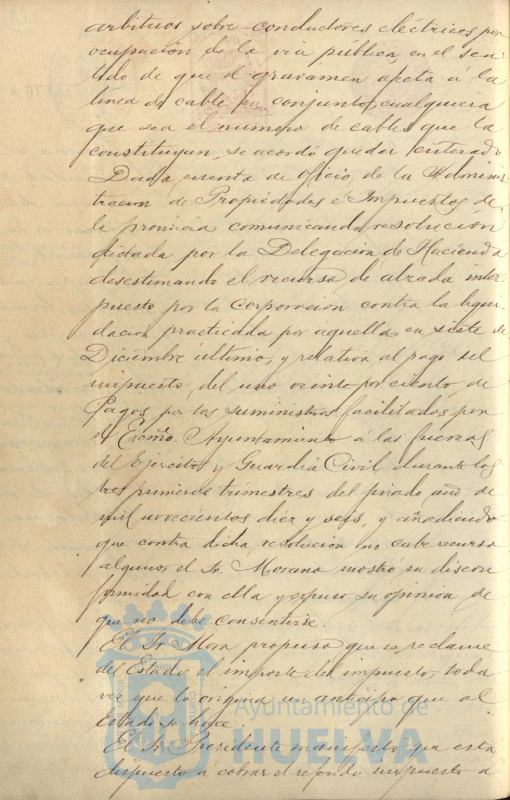 arbitrios sobre conductores eléctricos por
ocupación de la via pública, en el sen-
tido de que el gravamen afecta a la
linea de cable en conjunto, cualquiera
que sea el número de cables que la
constituyan, se acordó quedar enterado
Dada cuenta de oficio de la Adminis-
tracion de Propiedades e Impuestos de
la provincia comunicando resolución
dictada por la Delegación de Hacienda
desestimando el recurso de alzada inter
puesto por la Corporación contra la liqui-
dacion practicada por aquella en siete de
Diciembre último, y relativa al pago del
impuesto del uno veinte por ciento, de
Pagos por los suministros facilitados por
el Excmo. Ayuntamiento á las fuerzas
del Ejercito y Guardia Civil durante los
tres primeros trimestres del pasado año de
mil novecientos diez y seis, y añadiendo
que contra dicha resolucion no cabe recurso
alguno, el Sr. Morano mostró su discon
formidad con ella y expuso su opinion de
que no debe consentirse.
El Sr. Mora propuso que se reclame
del Estado el importe del impuesto, toda
vez que lo origina un anticipo que al
Estado se hace.
El Sr. Presidente manifestó que está
dispuesto á cobrar el referido impuesto á
Ayuntamiento de
HUELVA